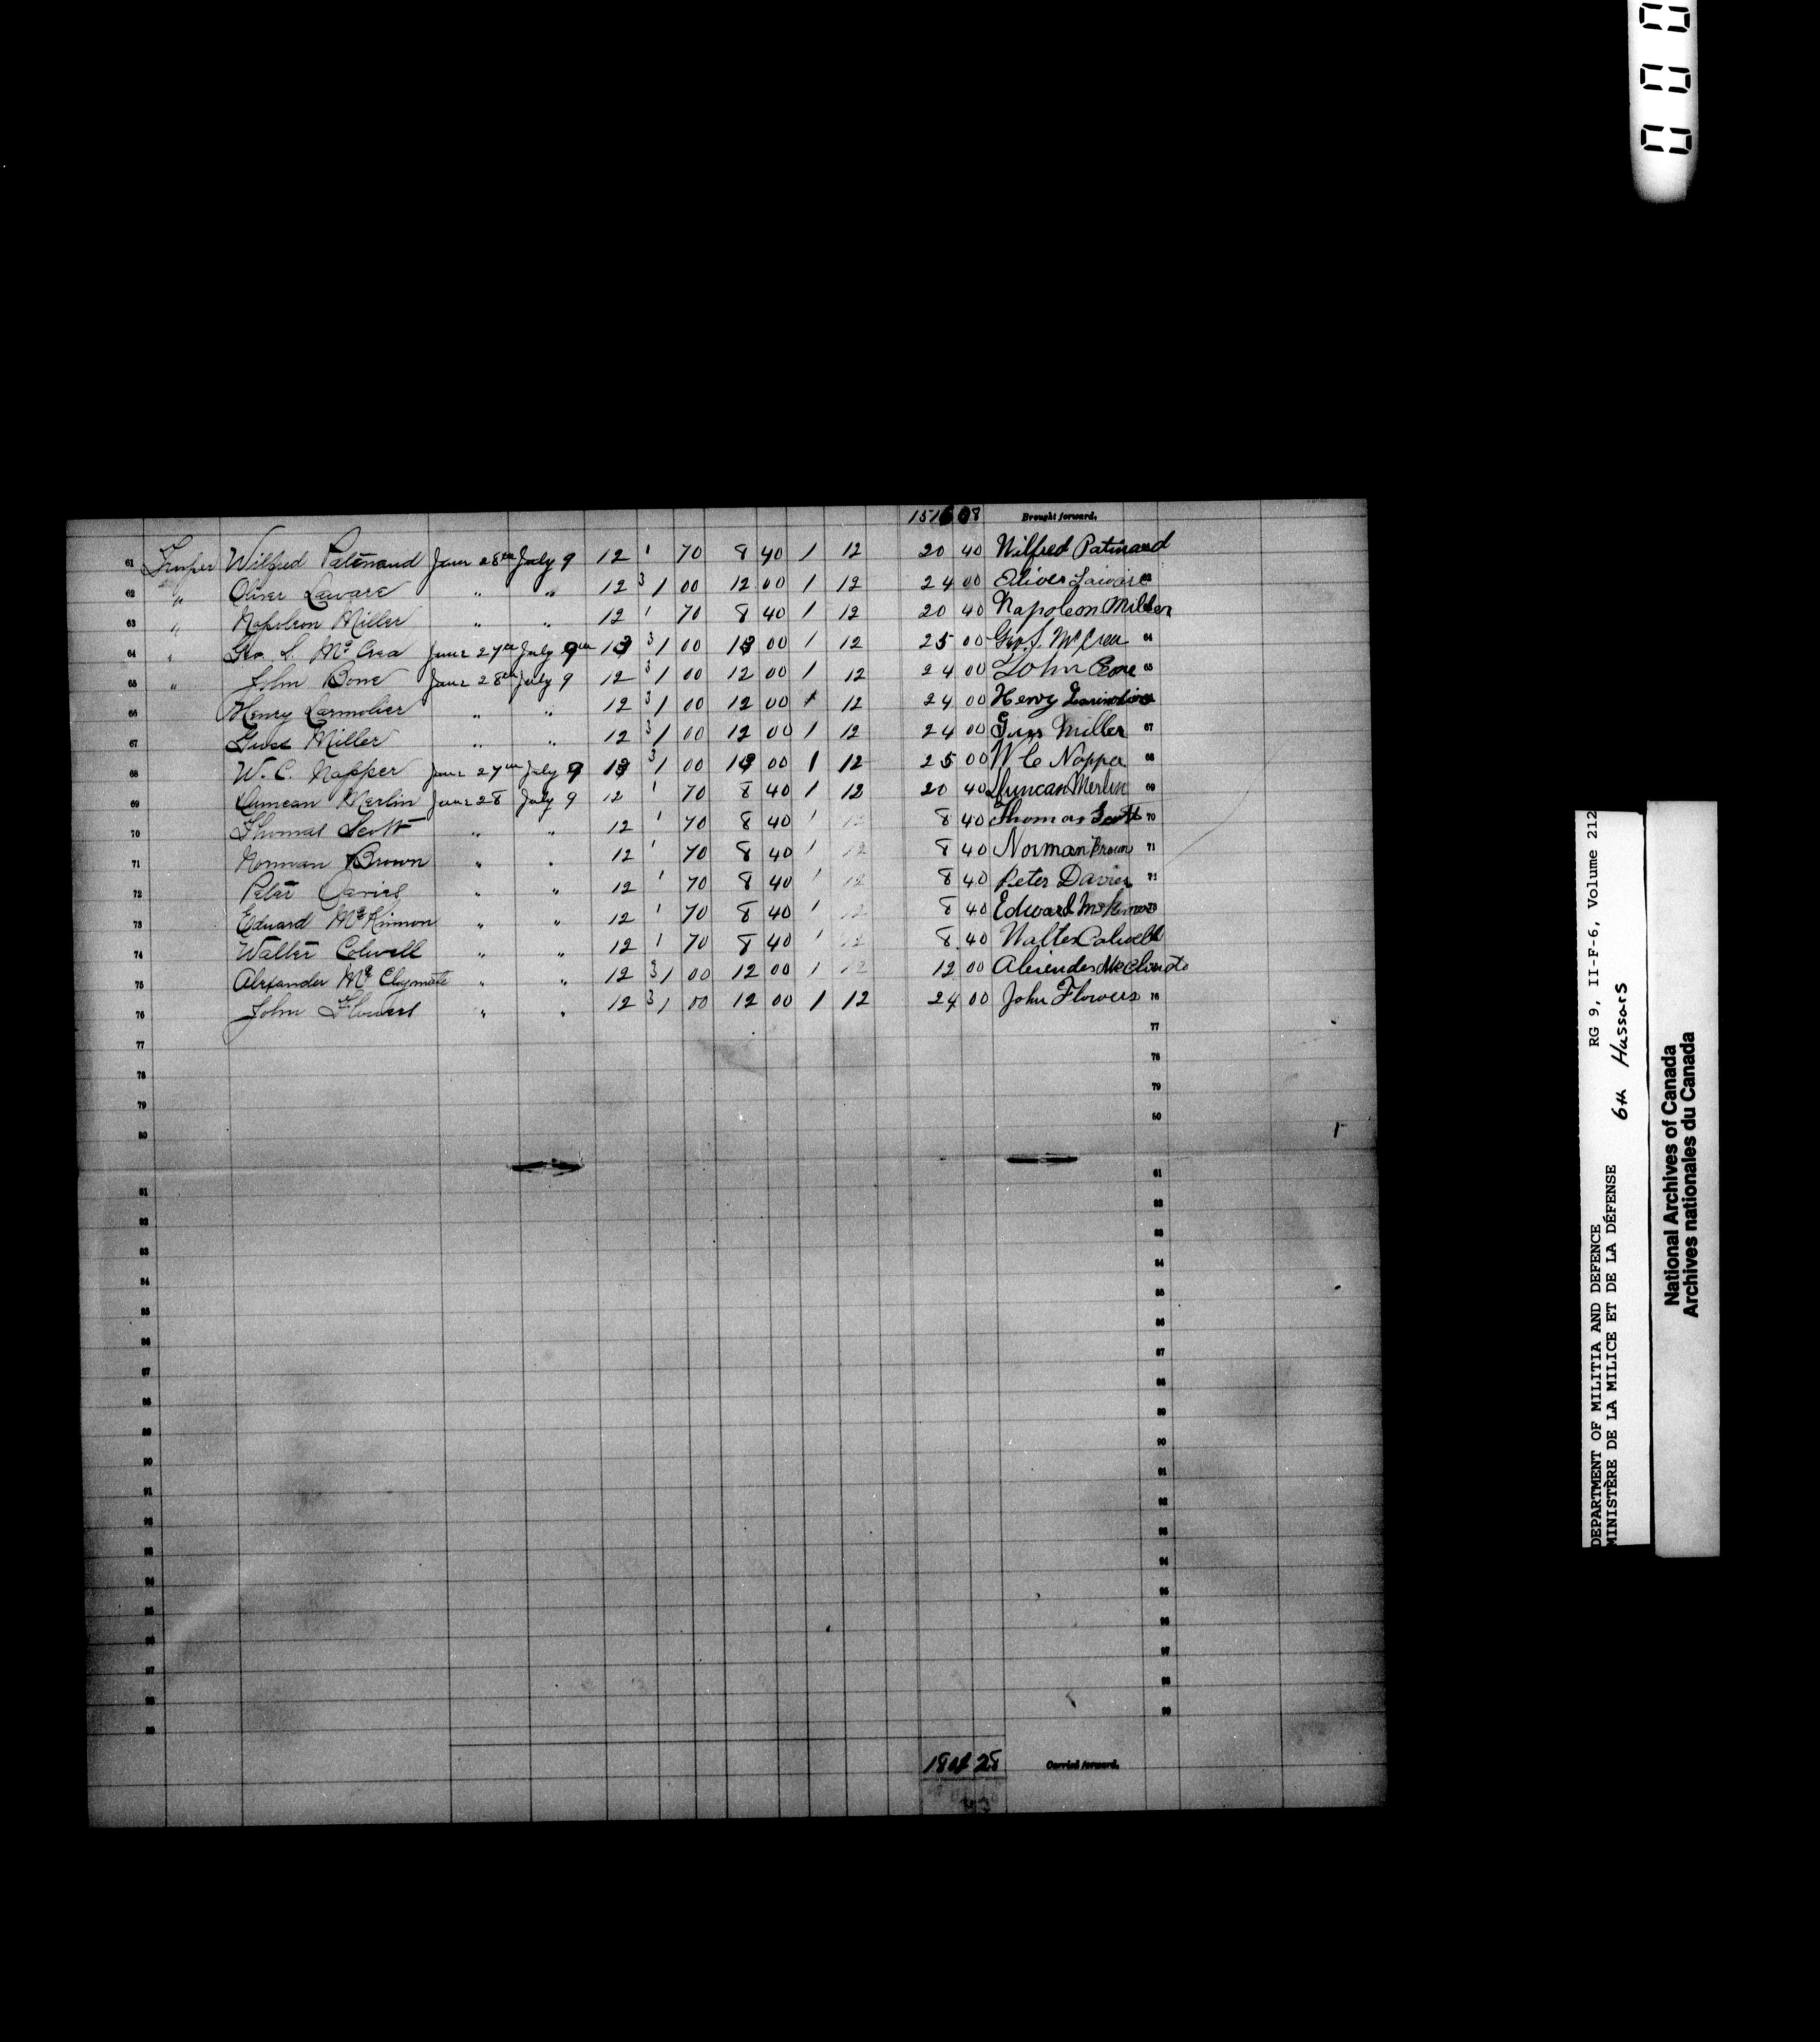 0 0 0
1516 08 Brought forward.
61 Trooper Wilfred Patenaud June 28th July 9 12 1 70 8 40 1 12 20 40 Wilfred Patinaud
62 " Oliver Lavare " " 12 3 1 00 12 00 1 12 24 00 Oliver 62
63 " Napoleon Miller " " 12 1 70 8 40 1 12 20 40 Napoleon Miller
64 " Geo. S. McCrea June 27th July 9th 13 3 1 00 13 00 1 12 25 00 Geo. S. McCrea 64
65 " John Bone June 28th July 9 12 3 1 00 12 00 1 12 24 00 John Bone 65
66 Henry Larmolier " " 12 3 1 00 12 00 1 12 24 00 Henry
67 Guss Miller " " 12 3 1 00 12 00 1 12 24 00 Guss Miller 67
68 W. C. Napper June 27th July 9 13 3 1 00 13 00 1 12 25 00 W C Napper 68
69 Duncan Merlin June 28 July 9 12 1 70 8 40 1 12 20 40 Duncan Merlin 69
70 Thomas Scott " " 12 1 70 8 40 1 12 8 40 Thomas Scott 70
71 Norman Brown " " 12 1 70 8 40 1 12 8 40 Norman Brown 71
72 Peter Davies " " 12 1 70 8 40 1 12 8 40 Peter Davies 72
73 Edward McKinnon " " 12 1 70 8 40 1 12 8 40 Edward McKinnon 73
74 Walter Colwell " " 12 1 70 8 40 1 12 8 40 Walter Colwell
75 Alexander Mc " " 12 3 1 00 12 00 1 12 12 00
76 John Flowers " " 12 3 1 00 12 00 1 12 24 00 John Flowers 76
77 77
78 78
79 79
80 80
81 81
82 82
83 83
84 84
85 85
86 86
87 87
88 88
89 89
90 90
91 91
92 92
93 93
94 94
95 95
96 96
97 97
98 98
99 99
1801 28 Carried forward.
DEPARTMENT OF MILITIA AND DEFENCE RG 9, II-F-6, Volume 212
MINISTÈRE DE LA MILICE ET DE LA DÉFENSE 6th Hussars
National Archives of Canada
Archives nationales du Canada